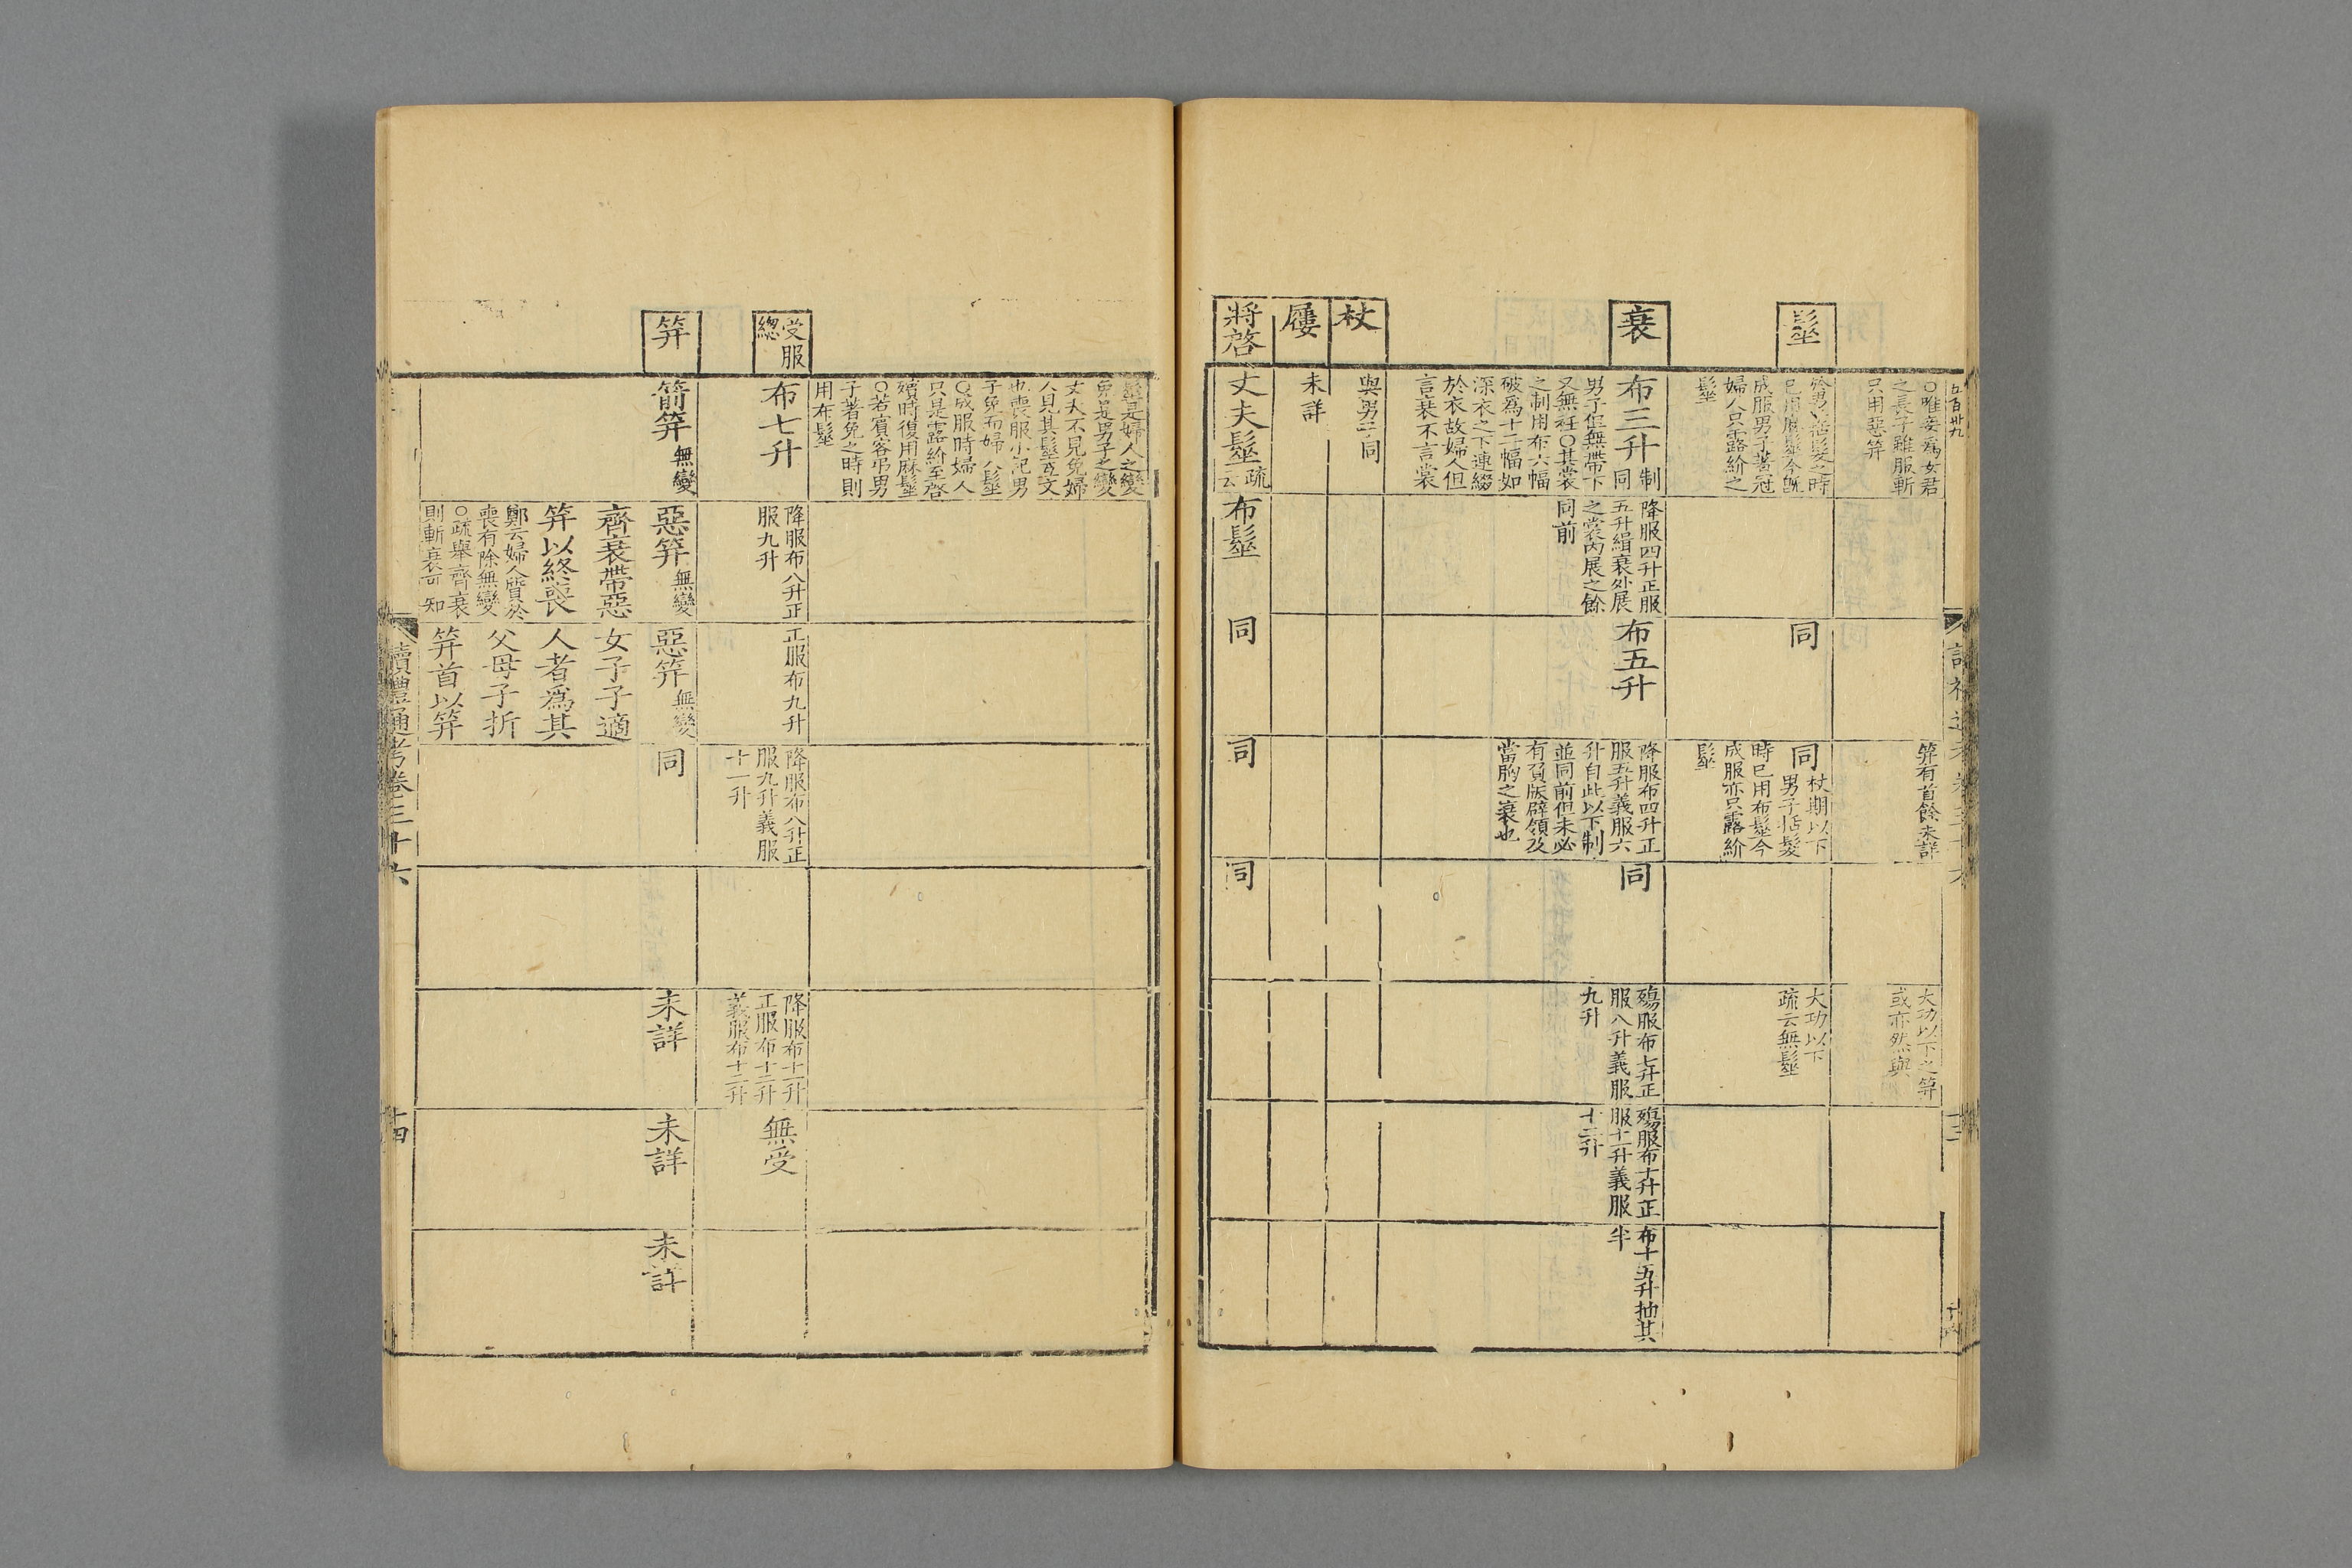 五百卅九
○唯妾爲女君
之長子雖服斬
只用惡笄
笄有首餘未詳
大功以下之笄
或亦然與
十三
髽
男子括髮之時
已用麻髽今旣
成服男子著冠
婦人只露紒之
髽
同
同
杖期以下
男子括髮
時已用布髽今
成服亦只露紒
髽
大功以下
疏云無髽
衰
布三升
制
同
男子但無帶下
又無衽○其裳
之制用布六幅
破爲十二幅如
深衣之下連綴
於衣故婦人但
言衰不言裳
降服四升正服
五升緝衰外展
之裳內展之餘
同前
布五升
降服布四升正
服五升義服六
升自此以下制
並同前但未必
有負版辟領及
當胸之衰也
同
殤服布七升正
服八升義服
九升
殤服布十升正
服十一升義服
十二升
布十五升抽其
半
杖
與男子同
屨
未詳
將啓
丈夫髽
疏
云
布髽
同
同
同
髽是婦人之變
免是男子之變
丈夫不見免婦
人見其髽互文
也喪服小記男
子免而婦人髽
○成服時婦人
只是露紒至啓
殯時復用麻髽
○若賓客弔男
子著免之時則
用布髽
受服
總
布七升
降服布八升正
服九升
正服布九升
降服布八升正
服九升義服
十一升
降服布十一升
正服布十二升
義服布十二升
無受
笄
箭笄
無變
惡笄
無變
齊衰帶惡
笄以終喪
鄭云婦人質於
喪有除無變
○疏舉齊衰
則斬衰可知
惡笄
無變
女子子適
人者爲其
父母子折
笄首以笄
同
未詳
未詳
未詳
讀禮通考卷三十六
十四